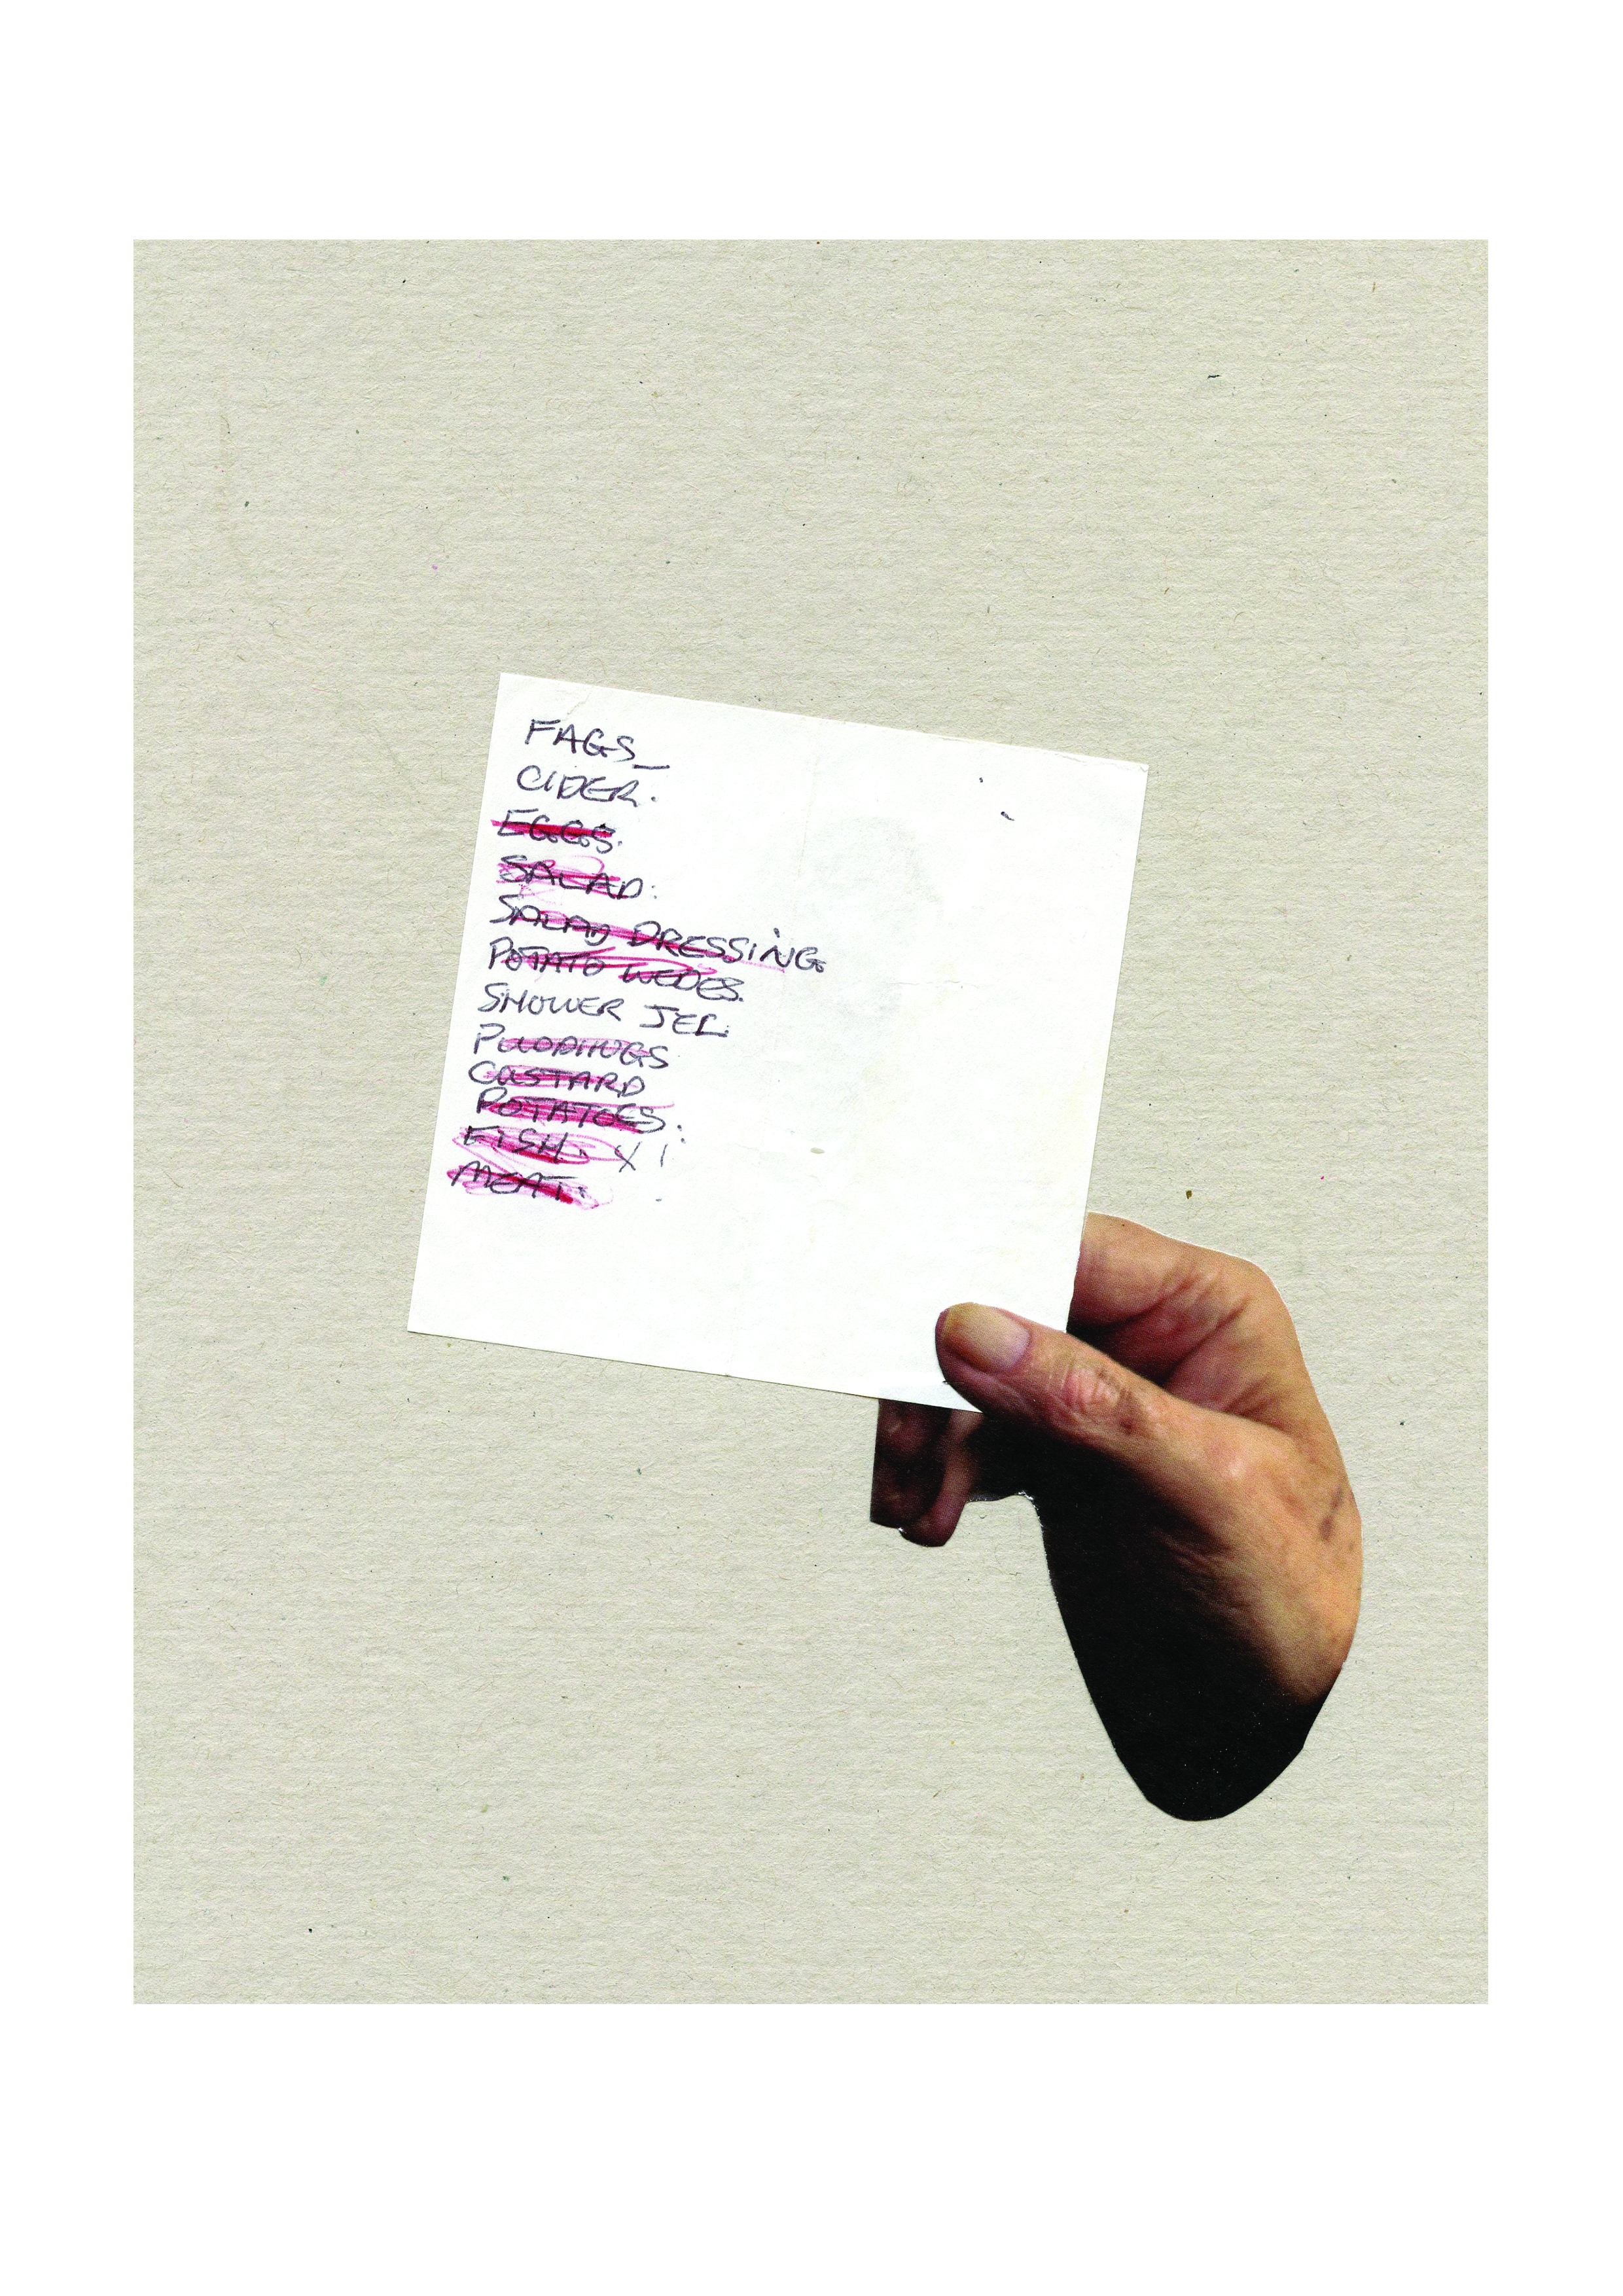 FAGS_
CIDER.
EGGS.
SALAD.
SALAD DRESSING.
POTATO WEDES.
SHOWER JEL.
PUDDINGS
CUSTARD
POTATOES.
FISH. X 1
MEAT.